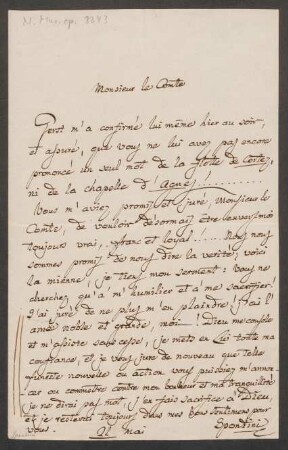 Monsieur le Comte
Gerst m'a confirmé lui même hier au soir,
et assuré, que vous ne lui avez pas encore
prononcé un seul mot de la flotte de Cortez,
ni de la chapelle d'Agnes!
Vous m'aviez promis et juré, Monsieur le
Comte, de vouloir désormais être
toujours vrai, franc et loyal!
sommes promis de nous dire la verité; voici
la mienne, je tiens mon serment: vous ne
cherchez qu'à m'humilier et à me sacrifier!
J'ai juré de ne plus m'en plaindre! J'ai l'
ame noble et grande, moi! Dieu me comble
et m'assiste sans cesse; je mets en Lui toute ma
confiance, et je vous jure de nouveau que telle
funeste nouvelle ou action vous puissiez m'annon-
cer ou commettre contre mon bonheur et ma tranquillité
je ne dirai pas mot. J'en fais sacrifice à Dieu,
et je resterai toujours dans mes bons sentimens pour
vous.
mai
Spontini